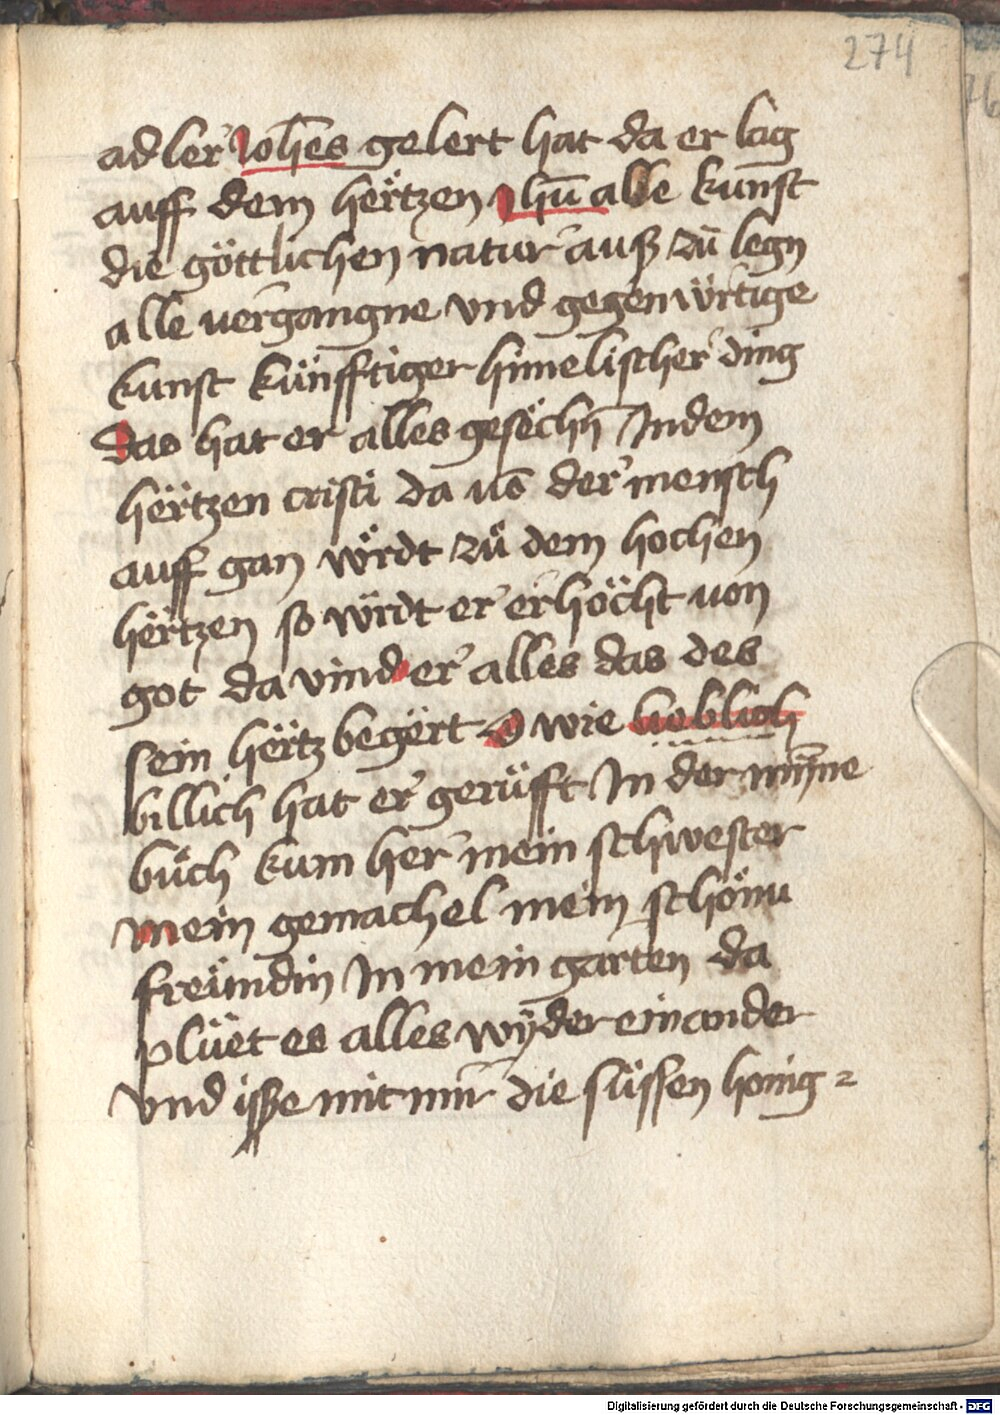 274
adler Joh̄es gelert hat da er lag
auff dem hërtzen Jhū alle kunst
die göttlichen natur auß zů legn
alle vergangne vnd gegenwürtige
kunst künfftiger himelischer ding
das hat er alles gesëchn̄ In dem
hërtzen cristi da vō der mensch
auff gan wirdt zů dem hochen
hërtzen so wirdt er erhöcht von
got da vind er alles das des
sein hërtz begërt O wie lieblich
billich hat er gerüfft In der mȳne
bůch kum her mein schwester
mein gemachel mein schönu
freündin In mein garten da
plüet es alles wÿder einander
vnd isße mit mir die süssen honig=
Digitalisierung gefördert durch die Deutsche Forschungsgemeinschaft - DFG